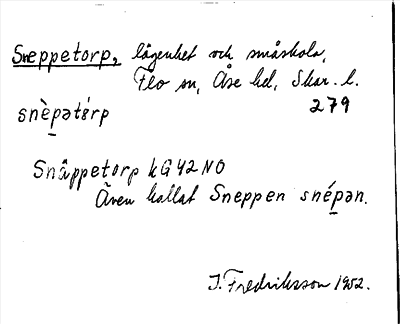 Sneppetorp, lägenhet och småskola,
Flo sn, Åse hd, Skar. l.
279
snèpətǿrp
Snäppetorp kG42NO
Även kallat Sneppen snépən.
I. Fredriksson 1952.